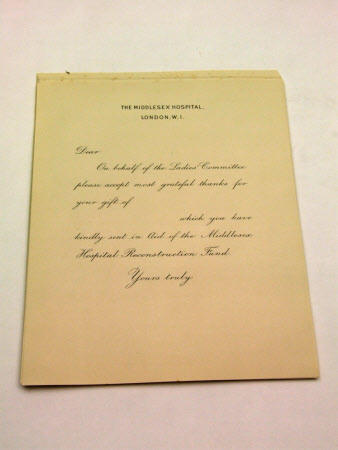 THE MIDDLESEX HOSPITAL,
LONDON, W.1.
Dear
On behalf of the Ladies' Committee
please accept most grateful thanks for
your gift of
which you have
kindly sent in Aid of the Middlesex
Hospital Reconstruction Fund.
Yours truly